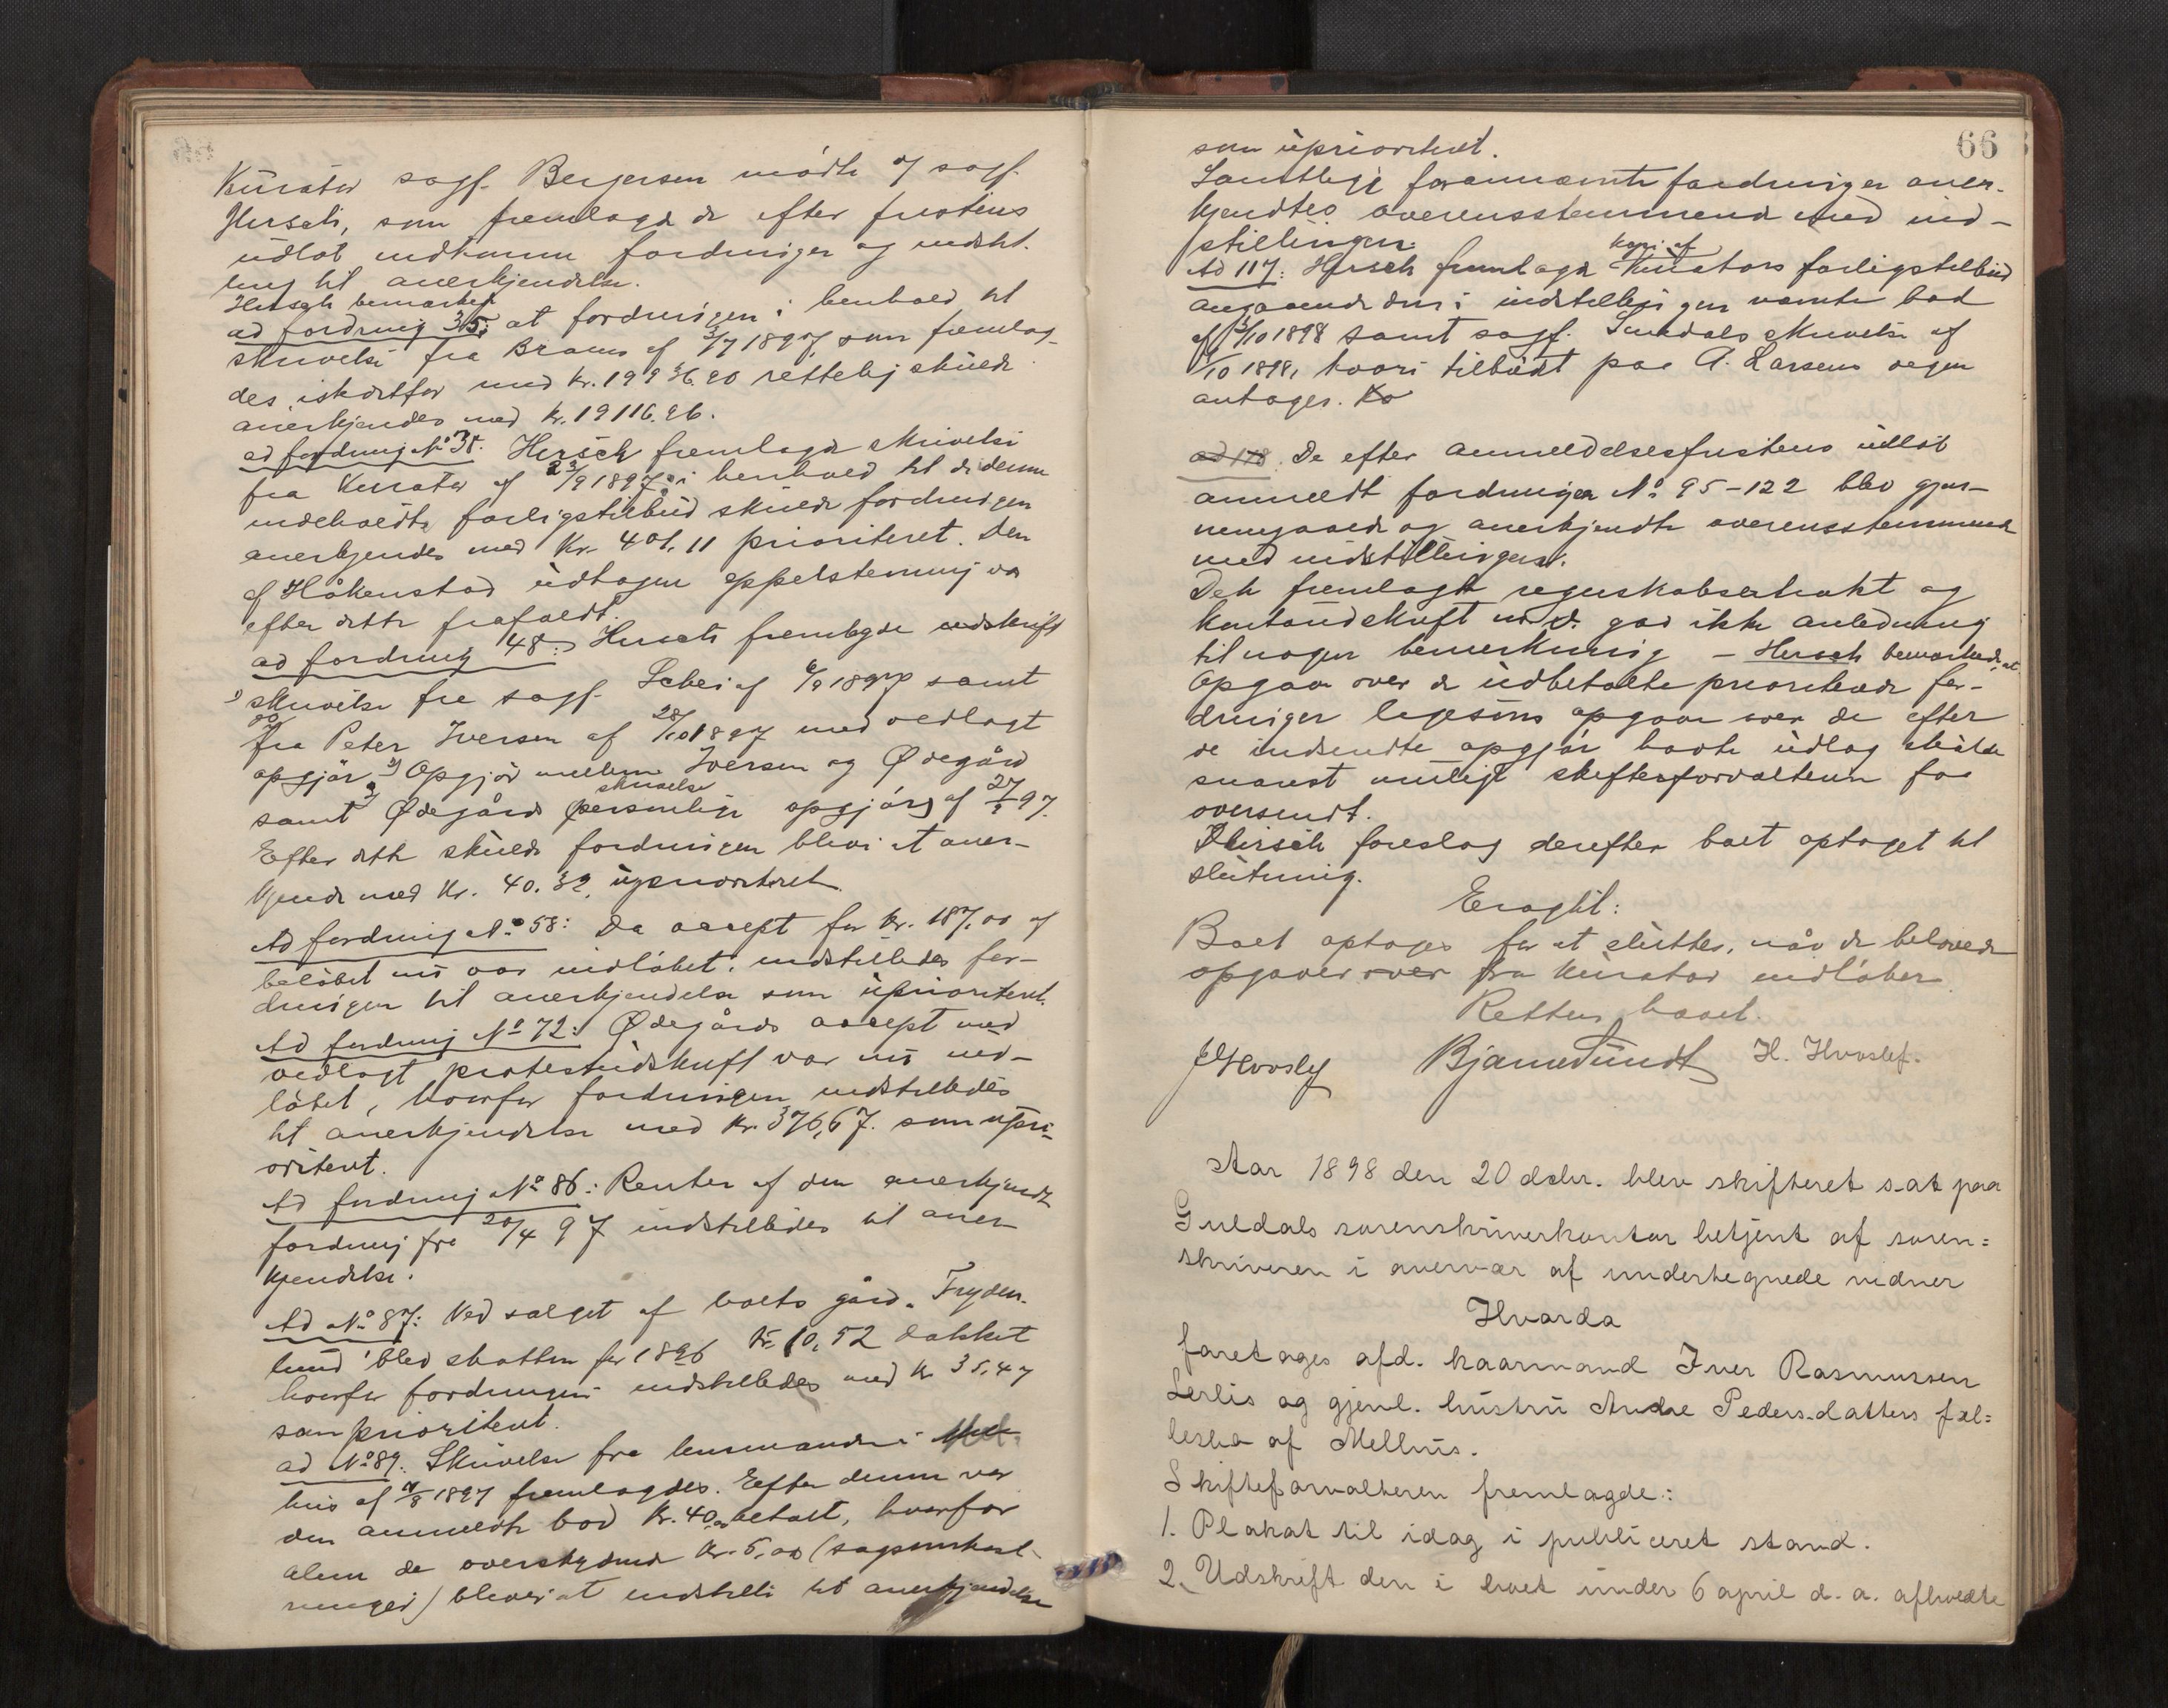 Kurator sagf. Bergersen mödte og sagf.
Hirsch, som fremlagde de efter fristens
udløb indkomne fordringer og indstil-
ling til anerkjendelse.
Hirsch bemærket
ad fordring 35: at fordringen i henhold til
skrivelse fra Braens af 3/7 1897, som fremlag-
des, istedetfor med kr. 19936.20 rettelig skulde
anerkjendes med kr. 19116.26.
ad fordring No 38. Hirsch fremlagde skrivelse
fra Kurator af 23/9 1897; i henhold til de denne
indeholdte forligstilbud skulde fordringen
anerkjendes med Kr. 401,11 prioriteret. Den
af Håkenstad udtagne appelstevning var
efter dette frafaldt.
ad fordring 48: Hirsch fremlagde udskrift
1) skrivelse fra sagf. Schei af 6/9 1897 samt
fra Peter Iversen af 28/10 1897 med vedlagt
opgjør 2) Opgjør mellem Iversen og Ødegård
samt 3) Ødegårds personlige skrivelse opgjör af 27/9 97.
Efter dette skulde fordringen blive at aner-
kjende med Kr. 40.32, uprioriteret.
Ad fordring No 58: Da accept for kr. 187,00 af
beløbet nu var indløbet, indstilledes for-
dringen til anerkjendelse som uprioriteret.
Ad fordring No 72: Ødegårds accept med
vedlagt protestudskrift var nu ind-
løbet, hvorfor fordringen indstilledes
til anerkjendelse med Kr. 376,67. som upri-
oriteret.
Ad fordring No 86: Renter af den anerkjendte
fordring fra 20/4 97 indstilledes til aner-
kjendelse.
Ad No 87: Ved salget af boets gård „Fryden-
lund" blev skatten for 1896 Kr. 10,52 dækket
hvorfor fordringen indstilledes med Kr 35,47
som prioriteret.
ad No 89: Skrivelse fra lensmanden i Mel-
hus af 11/8 1897 fremlagdes. Efter denne var
den anmeldte bod Kr. 40,00 betalt, hvorfor
alene de overskydende Kr. 5,00 (sagsomkost-
ninger) bliver at indstille til anerkjendelse
66
som uprioriteret.
Samtlige forannævnte fordringer aner-
kjendtes overensstemmende med ind-
stillingen.
Ad 117: Hirsch fremlagde kopi af Kurators forligstilbud
angaaende den i indstillingen nævnte bod
af 3/10 1898 samt sagf. Sundals skrivelse af
/10 1898, hvori tilbudet paa A. Larsens vegne
antages. Ko
ad 118. De efter anmeldelsesfristens udløb
anmeldte fordringer No 95-122 blev gjen-
nemgaaede og anerkjendte overensstemmende
med indstillingen.
Det fremlagte regnskabsextrakt og
kontoudskrift m. v. gav ikke anledning
til nogen bemerkning – Hirsch bemærkede, at
Opgave over de udbetalte prioriterede for-
dringer ligesom opgave over de efter
de indsendte opgjør havte udlæg skulde
snarest muligt skifteforvalteren faa
oversendt.
Hirsch foreslog derefter boet optaget til
slutning.
Eragtet:
Boet optages for at sluttes, når de belovede
opgaver over fra Kurator indløber.
Retten hævet.
JHvoslef Bjarne Sundt H. Hvoslef.
Aar 1898 den 20 decbr. blev skifteret sat paa
Guldals sorenskriverkontor betjent af soren=
skriveren i overvær af undertegnede vidner
Hvorda
foretages afd. kaarmand Iver Rasmussen
Lerlis og gjenl. hustru Andre Pedersdatters fæl=
lesbo af Melhus.
Skifteforvalteren fremlagde:
1. Plakat til idag i publiceret stand.
2. Udskrift den i boet under 6 april d. a. afholdte